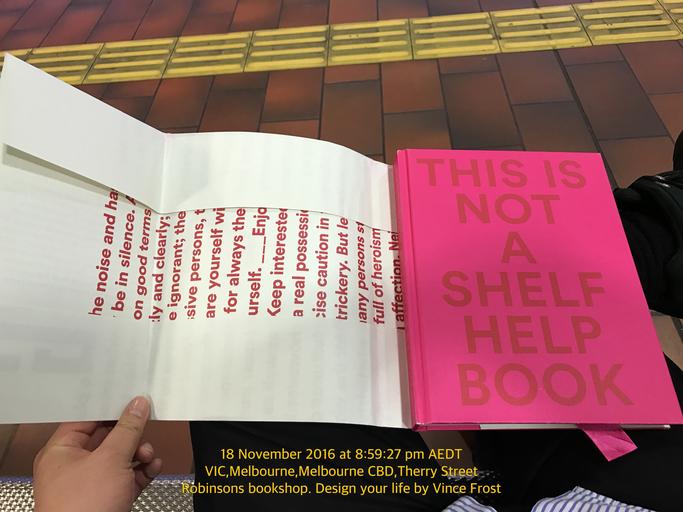 he noise and ha
be in silence.
on good terms
ly and clearly;
e ignorant; the
sive persons, t
are yourself wi
for always the
urself. ___Enjo
Keep interested
a real possessi
cise caution in
trickery. But le
any persons s
full of heroism
affection. Ne
THIS IS
NOT
A
SHELF
HELP
BOOK
18 November 2016 at 8:59:27 pm AEDT
VIC,Melbourne,Melbourne CBD,Therry Street
Robinsons bookshop. Design your life by Vince Frost